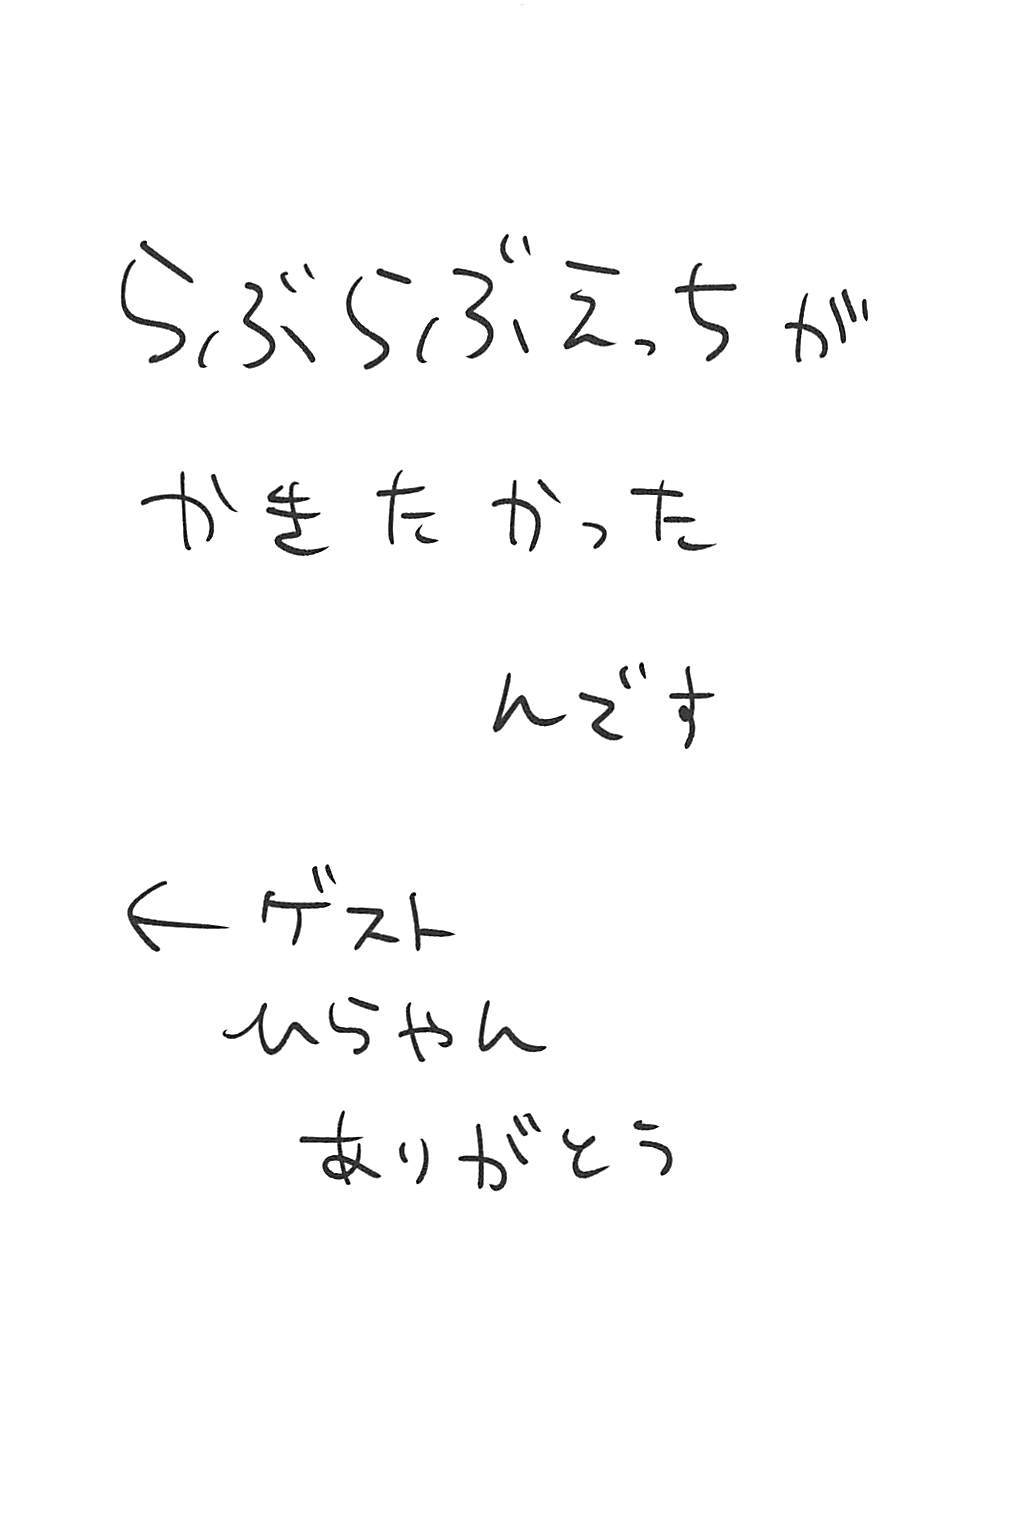 らぶらぶえっちが
かきたかった
んです
←ゲスト
ひらやん
ありがとう